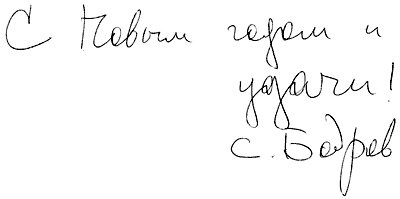 С Новым годом и
удачи!
С. Бодров